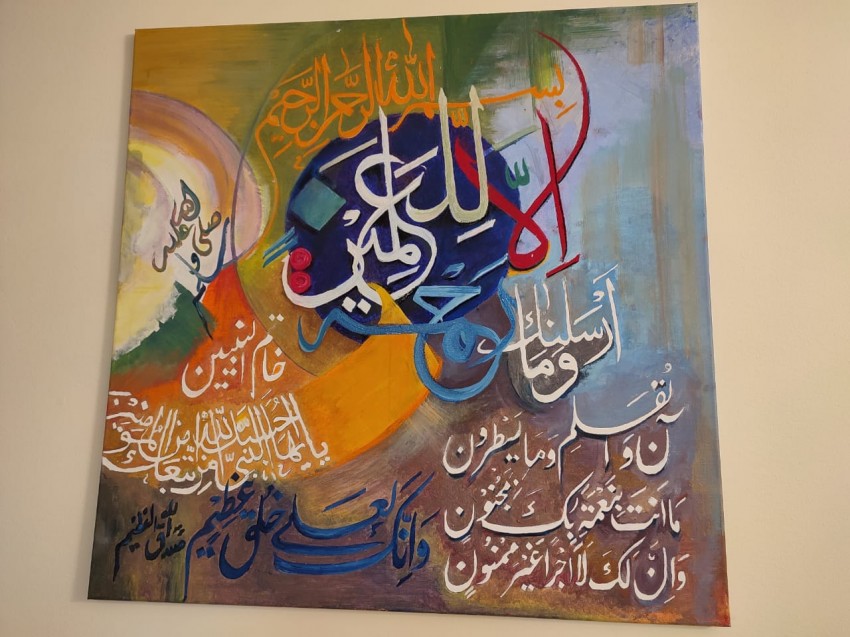 بِسْمِ اللهِ الرَّحْمٰنِ الرَّحِيْمِ
وَمَا أَرْسَلْنٰكَ
اِلَّا رَحْمَةً
لِّلْعٰلَمِيْنَ
صلی اللہ علیہ وسلم
خاتم النبیین
يايها النبي حسبك الله ومن اتبعك من المؤمنين
نۤ وَالْقَلَمِ وَمَا يَسْطُرُونَ
مَا اَنْتَ بِنِعْمَةِ رَبِّكَ بِمَجْنُوْنٍ
وَاِنَّ لَكَ لَاَجْرًا غَيْرَ مَمْنُوْنٍ
وَاِنَّكَ لَعَلٰى خُلُقٍ عَظِيْمٍ
صدق الله العظيم